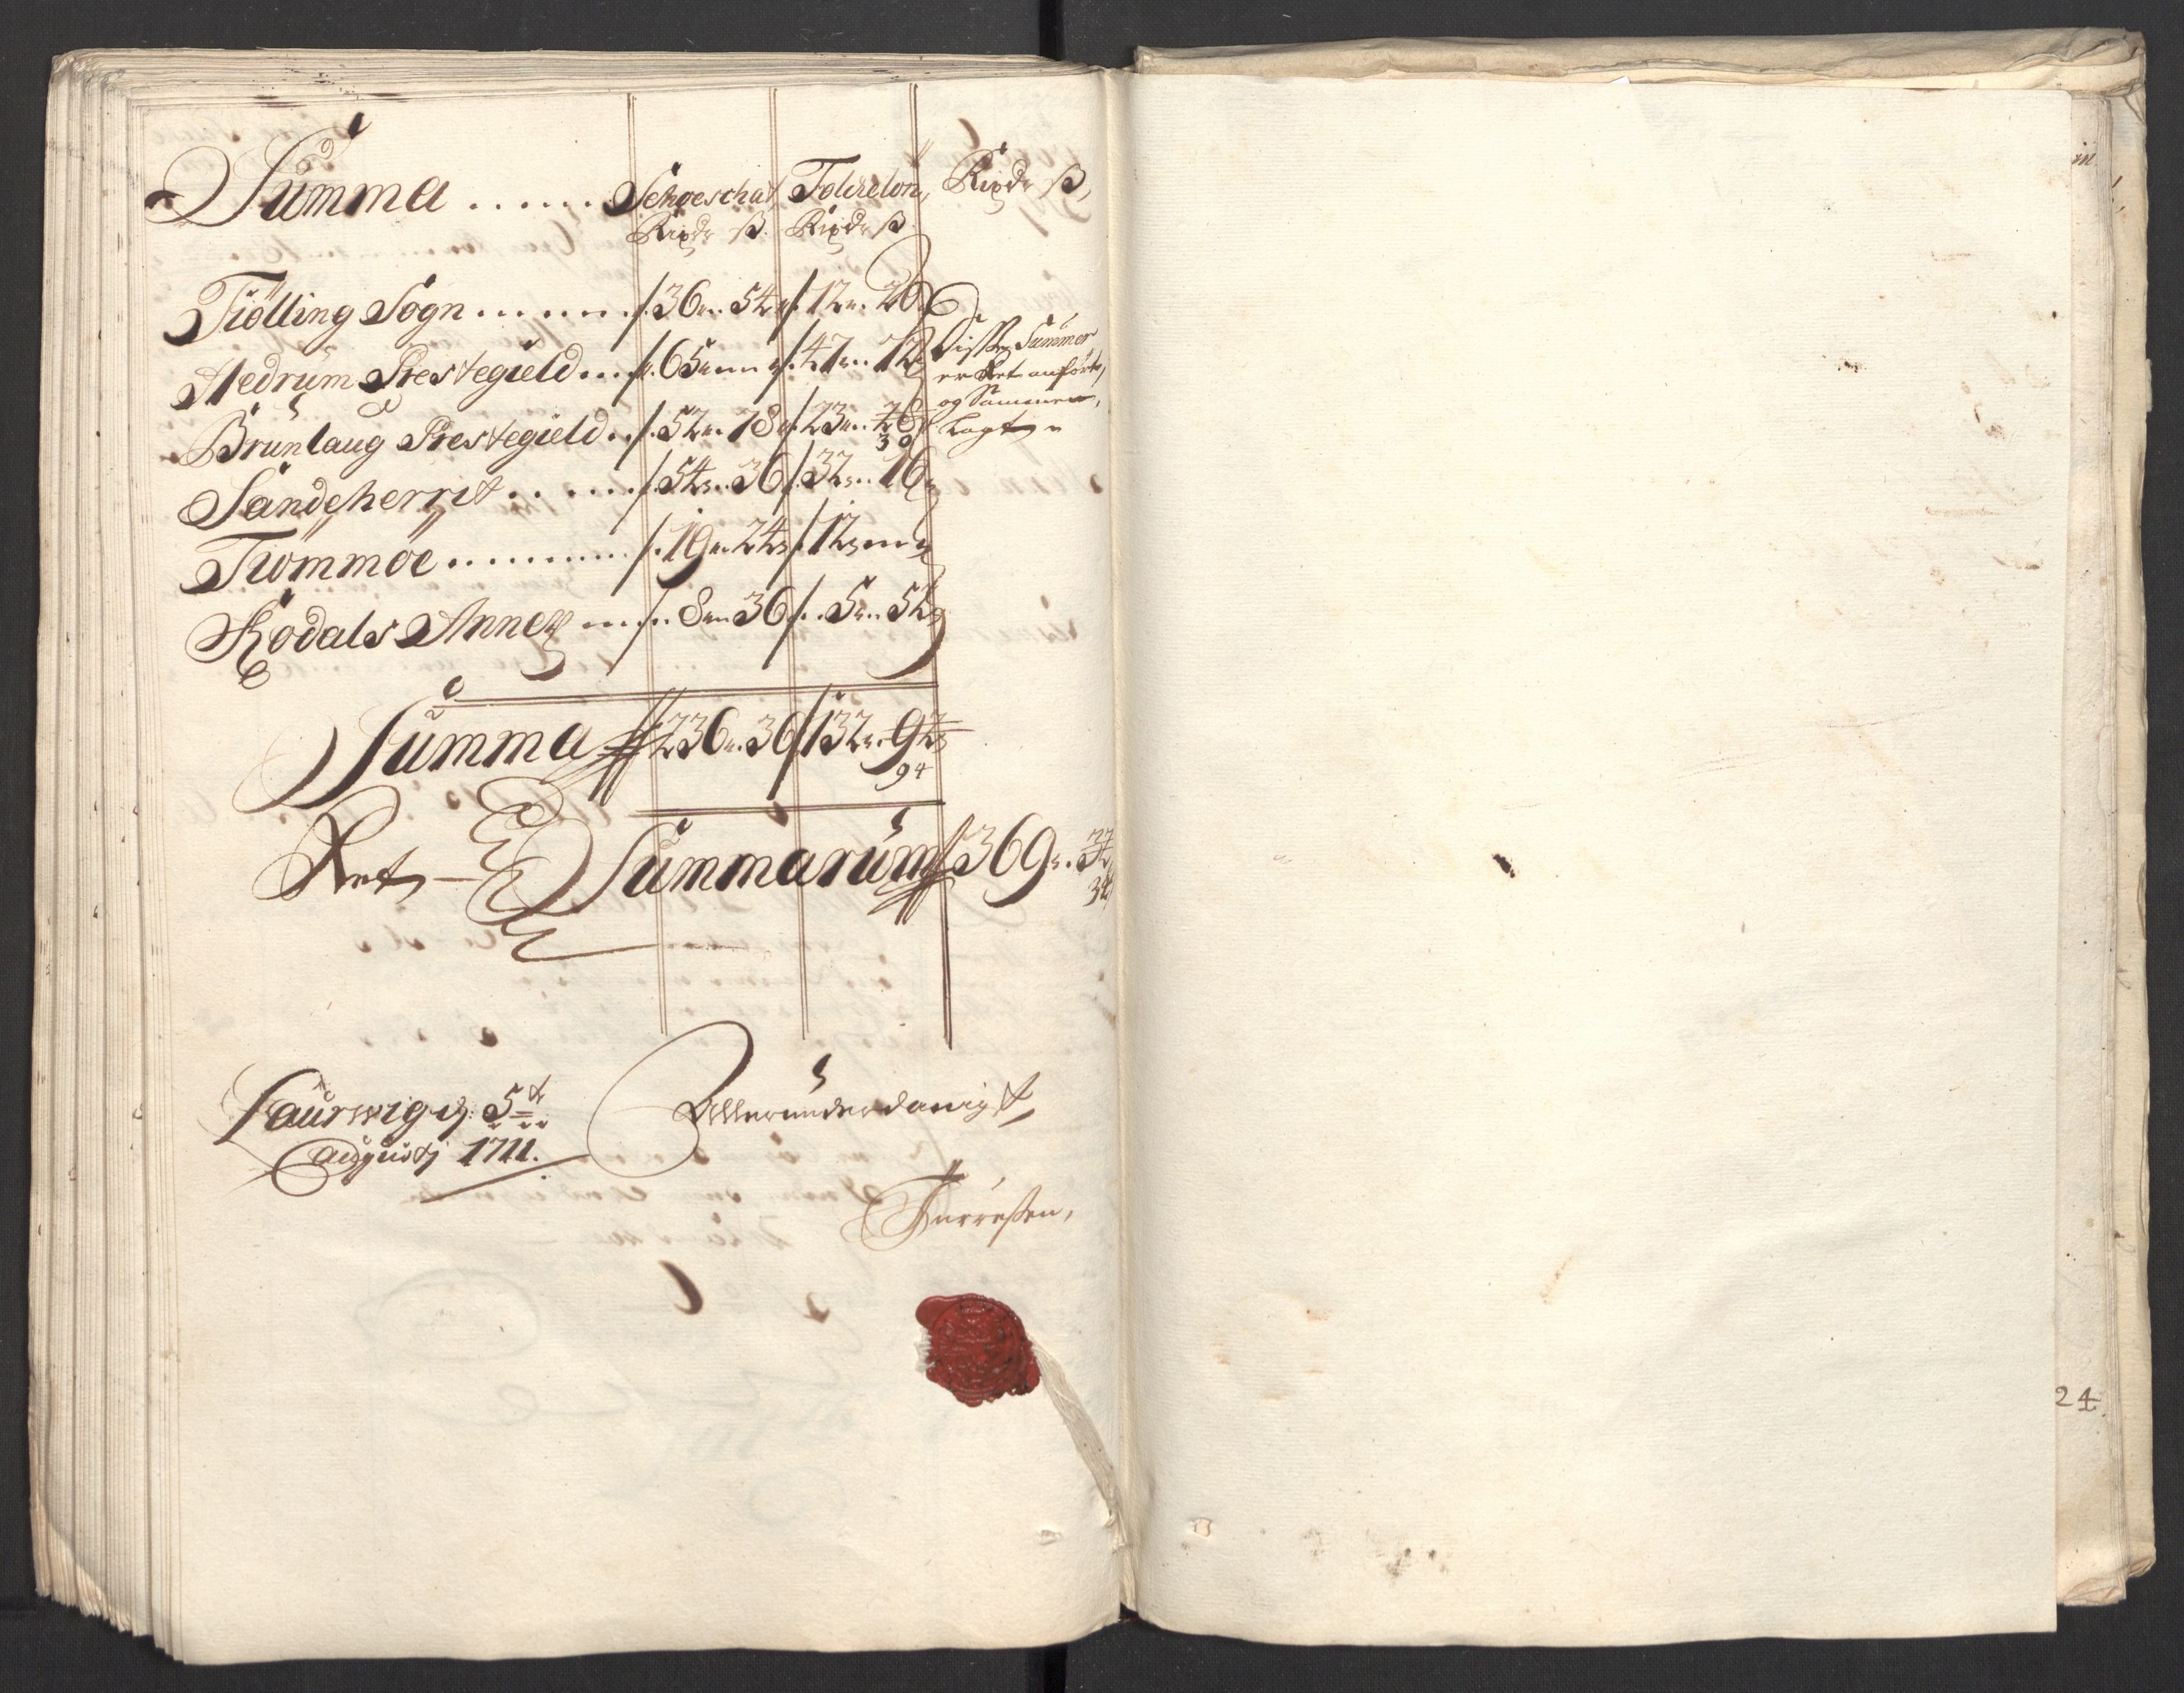 Summa ...... Schoeschat, Folcelon, Rixdr ß,
Rixdr ß. Rixdr ß.
Tiølling Sogn ....... 36 .. 54 12 .. 20
Hedrum Prestegield ... 65 .. 47 .. 72
Brunlaug Prestegield .. 52 .. 78 23 .. 28
30
Sandeherrit ...... 54 .. 36 32 .. 16
Tiømmøe ......... 19 .. 24 12
Kodals Annex .... 8 .. 36 5 .. 52
Disse Summer
er Ret anførte,
og Sammen
Lagt
Summa 236 .. 36 132 .. 92
94
Ret Summarum 369 .. 32
34
Laurwig d. 5te
Augustj 1711.
Allerunderdanigst,